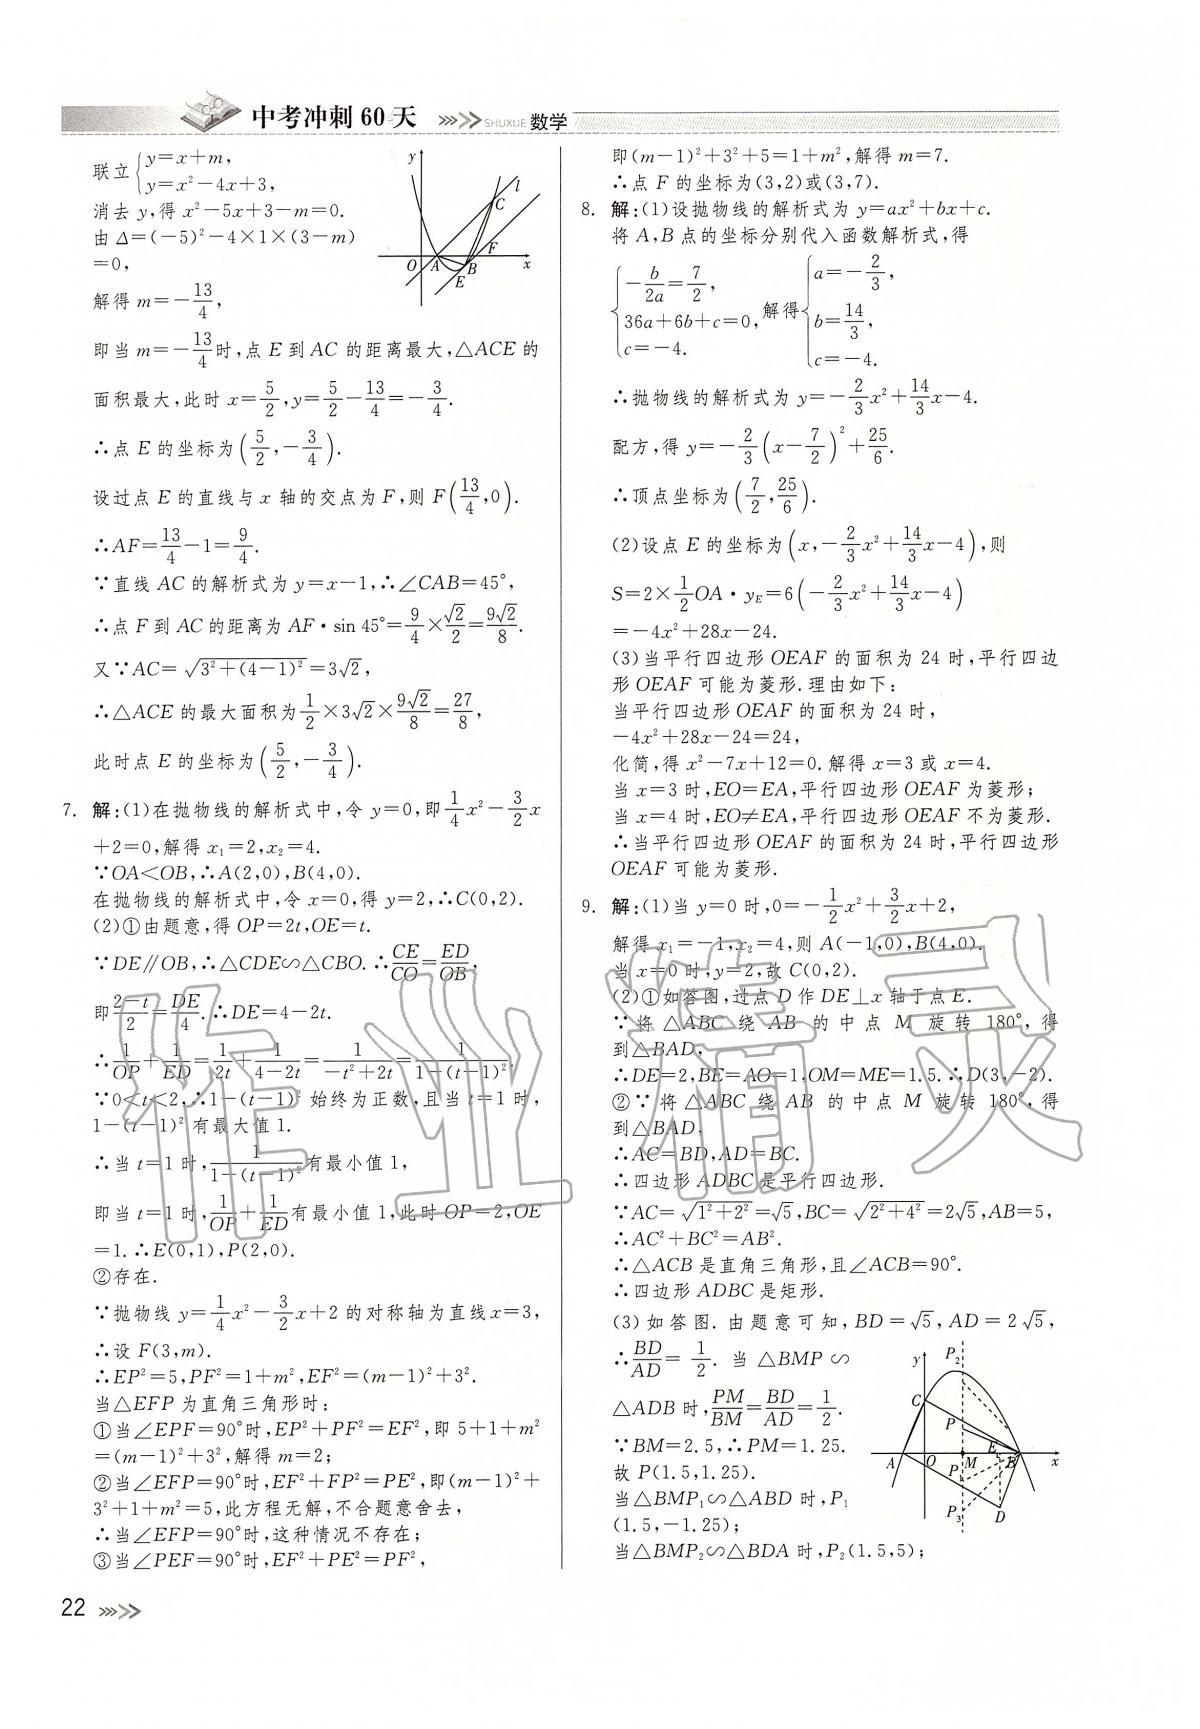 中考冲刺60天 SHUXUE 数学
联立{y=x+m, y=x²-4x+3,
消去 y,得 x²-5x+3-m=0.
由 Δ=(-5)²-4×1×(3-m)
=0,
解得 m=-13/4,
即当 m=-13/4时,点 E 到 AC 的距离最大,△ACE 的
面积最大,此时 x=5/2,y=5/2-13/4=-3/4.
∴点 E 的坐标为(5/2,-3/4).
设过点 E 的直线与 x 轴的交点为 F,则 F(13/4,0).
∴AF=13/4-1=9/4.
∵直线 AC 的解析式为 y=x-1,∴∠CAB=45°,
∴点 F 到 AC 的距离为 AF·sin 45°=9/4×√2/2=9√2/8.
又∵AC=√(3²+(4-1)²)=3√2,
∴△ACE 的最大面积为1/2×3√2×9√2/8=27/8,
此时点 E 的坐标为(5/2,-3/4).
7. 解:(1)在抛物线的解析式中,令 y=0,即1/4x²-3/2x
+2=0,解得 x₁=2,x₂=4.
∵OA<OB,∴A(2,0),B(4,0).
在抛物线的解析式中,令 x=0,得 y=2,∴C(0,2).
(2)①由题意,得 OP=2t,OE=t.
∵DE∥OB,∴△CDE∽△CBO.∴CE/CO=ED/OB,
即(2-t)/2=DE/4.∴DE=4-2t.
∴1/OP+1/ED=1/2t+1/(4-2t)=1/(-t²+2t)=1/(1-(t-1)²).
∵0<t<2,∴1-(t-1)² 始终为正数,且当 t=1 时,
1-(t-1)² 有最大值 1.
∴当 t=1 时,1/(1-(t-1)²)有最小值 1,
即当 t=1 时,1/OP+1/ED有最小值 1,此时 OP=2,OE
=1.∴E(0,1),P(2,0).
②存在.
∵抛物线 y=1/4x²-3/2x+2 的对称轴为直线 x=3,
∴设 F(3,m).
∴EP²=5,PF²=1+m²,EF²=(m-1)²+3².
当△EFP 为直角三角形时:
①当∠EPF=90°时,EP²+PF²=EF²,即 5+1+m²
=(m-1)²+3²,解得 m=2;
②当∠EFP=90°时,EF²+FP²=PE²,即(m-1)²+
3²+1+m²=5,此方程无解,不合题意舍去,
∴当∠EFP=90°时,这种情况不存在;
③当∠PEF=90°时,EF²+PE²=PF²,
y l C F O A B E x
即(m-1)²+3²+5=1+m²,解得 m=7.
∴点 F 的坐标为(3,2)或(3,7).
8. 解:(1)设抛物线的解析式为 y=ax²+bx+c.
将 A,B 点的坐标分别代入函数解析式,得
{-b/2a=7/2, 36a+6b+c=0, c=-4. 解得{a=-2/3, b=14/3, c=-4.
∴抛物线的解析式为 y=-2/3x²+14/3x-4.
配方,得 y=-2/3(x-7/2)²+25/6.
∴顶点坐标为(7/2,25/6).
(2)设点 E 的坐标为(x,-2/3x²+14/3x-4),则
S=2×1/2OA·yE=6(-2/3x²+14/3x-4)
=-4x²+28x-24.
(3)当平行四边形 OEAF 的面积为 24 时,平行四边
形 OEAF 可能为菱形.理由如下:
当平行四边形 OEAF 的面积为 24 时,
-4x²+28x-24=24,
化简,得 x²-7x+12=0.解得 x=3 或 x=4.
当 x=3 时,EO=EA,平行四边形 OEAF 为菱形;
当 x=4 时,EO≠EA,平行四边形 OEAF 不为菱形.
∴当平行四边形 OEAF 的面积为 24 时,平行四边形
OEAF 可能为菱形.
9. 解:(1)当 y=0 时,0=-1/2x²+3/2x+2,
解得 x₁=-1,x₂=4,则 A(-1,0),B(4,0).
当 x=0 时,y=2,故 C(0,2).
(2)①如答图,过点 D 作 DE⊥x 轴于点 E.
∵将 △ABC 绕 AB 的中点 M 旋转 180°,得
到△BAD,
∴DE=2,BE=AO=1,OM=ME=1.5.∴D(3,-2).
②∵将 △ABC 绕 AB 的中点 M 旋转 180°,得
到△BAD,
∴AC=BD,AD=BC.
∴四边形 ADBC 是平行四边形.
∵AC=√(1²+2²)=√5,BC=√(2²+4²)=2√5,AB=5,
∴AC²+BC²=AB².
∴△ACB 是直角三角形,且∠ACB=90°.
∴四边形 ADBC 是矩形.
(3)如答图.由题意可知,BD=√5,AD=2√5,
∴BD/AD=1/2.当 △BMP∽
△ADB 时,PM/BM=BD/AD=1/2.
∵BM=2.5,∴PM=1.25.
故 P(1.5,1.25).
当△BMP₁∽△ABD 时,P₁
(1.5,-1.25);
当△BMP₂∽△BDA 时,P₂(1.5,5);
y P₂ C P E A O M B x P₁ P₃ D
22
作业精灵